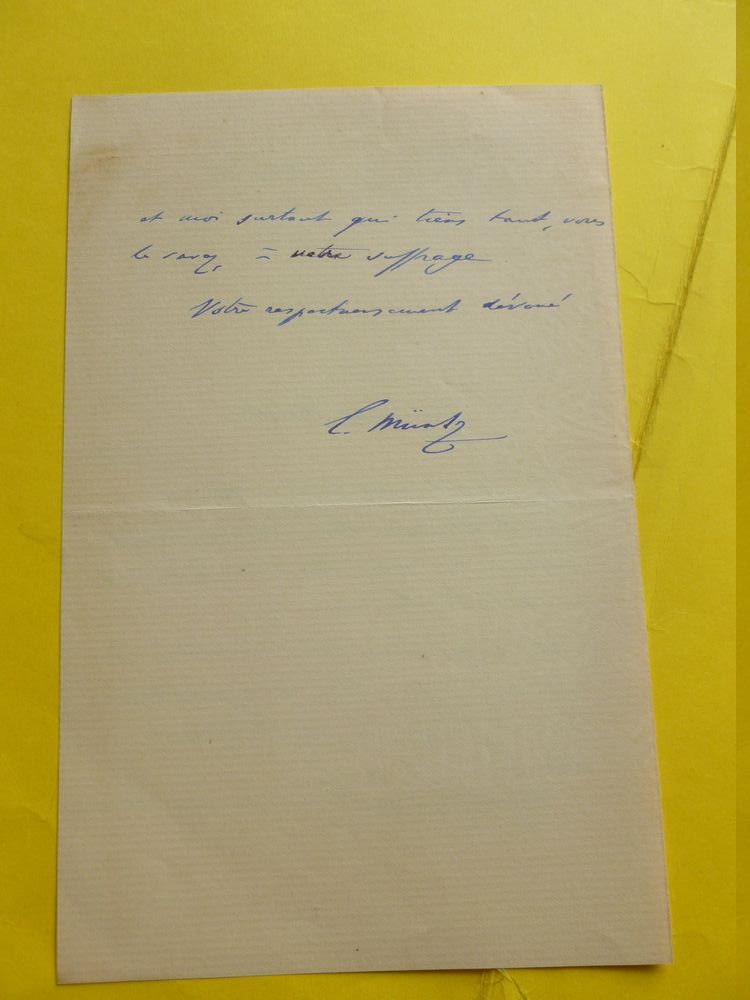 et moi surtout qui tiens tant, vous
le savez, à votre suffrage.
Votre respectueusement dévoué
E. Müntz